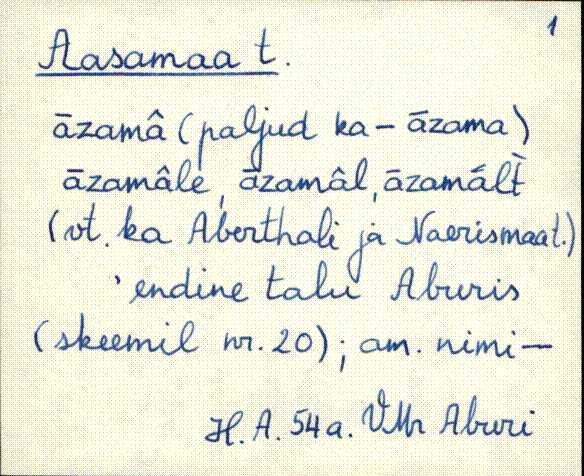 1
Aasamaa t.
āzamâ (paljud ka – āzama)
āzamâle, āzamâl, āzamâlt̀
(vt. ka Aberthali ja Naerismaa t.)
'endine talu Aburis
(skeemil nr. 20); am. nimi –
H. A. 54 a. VMr Aburi